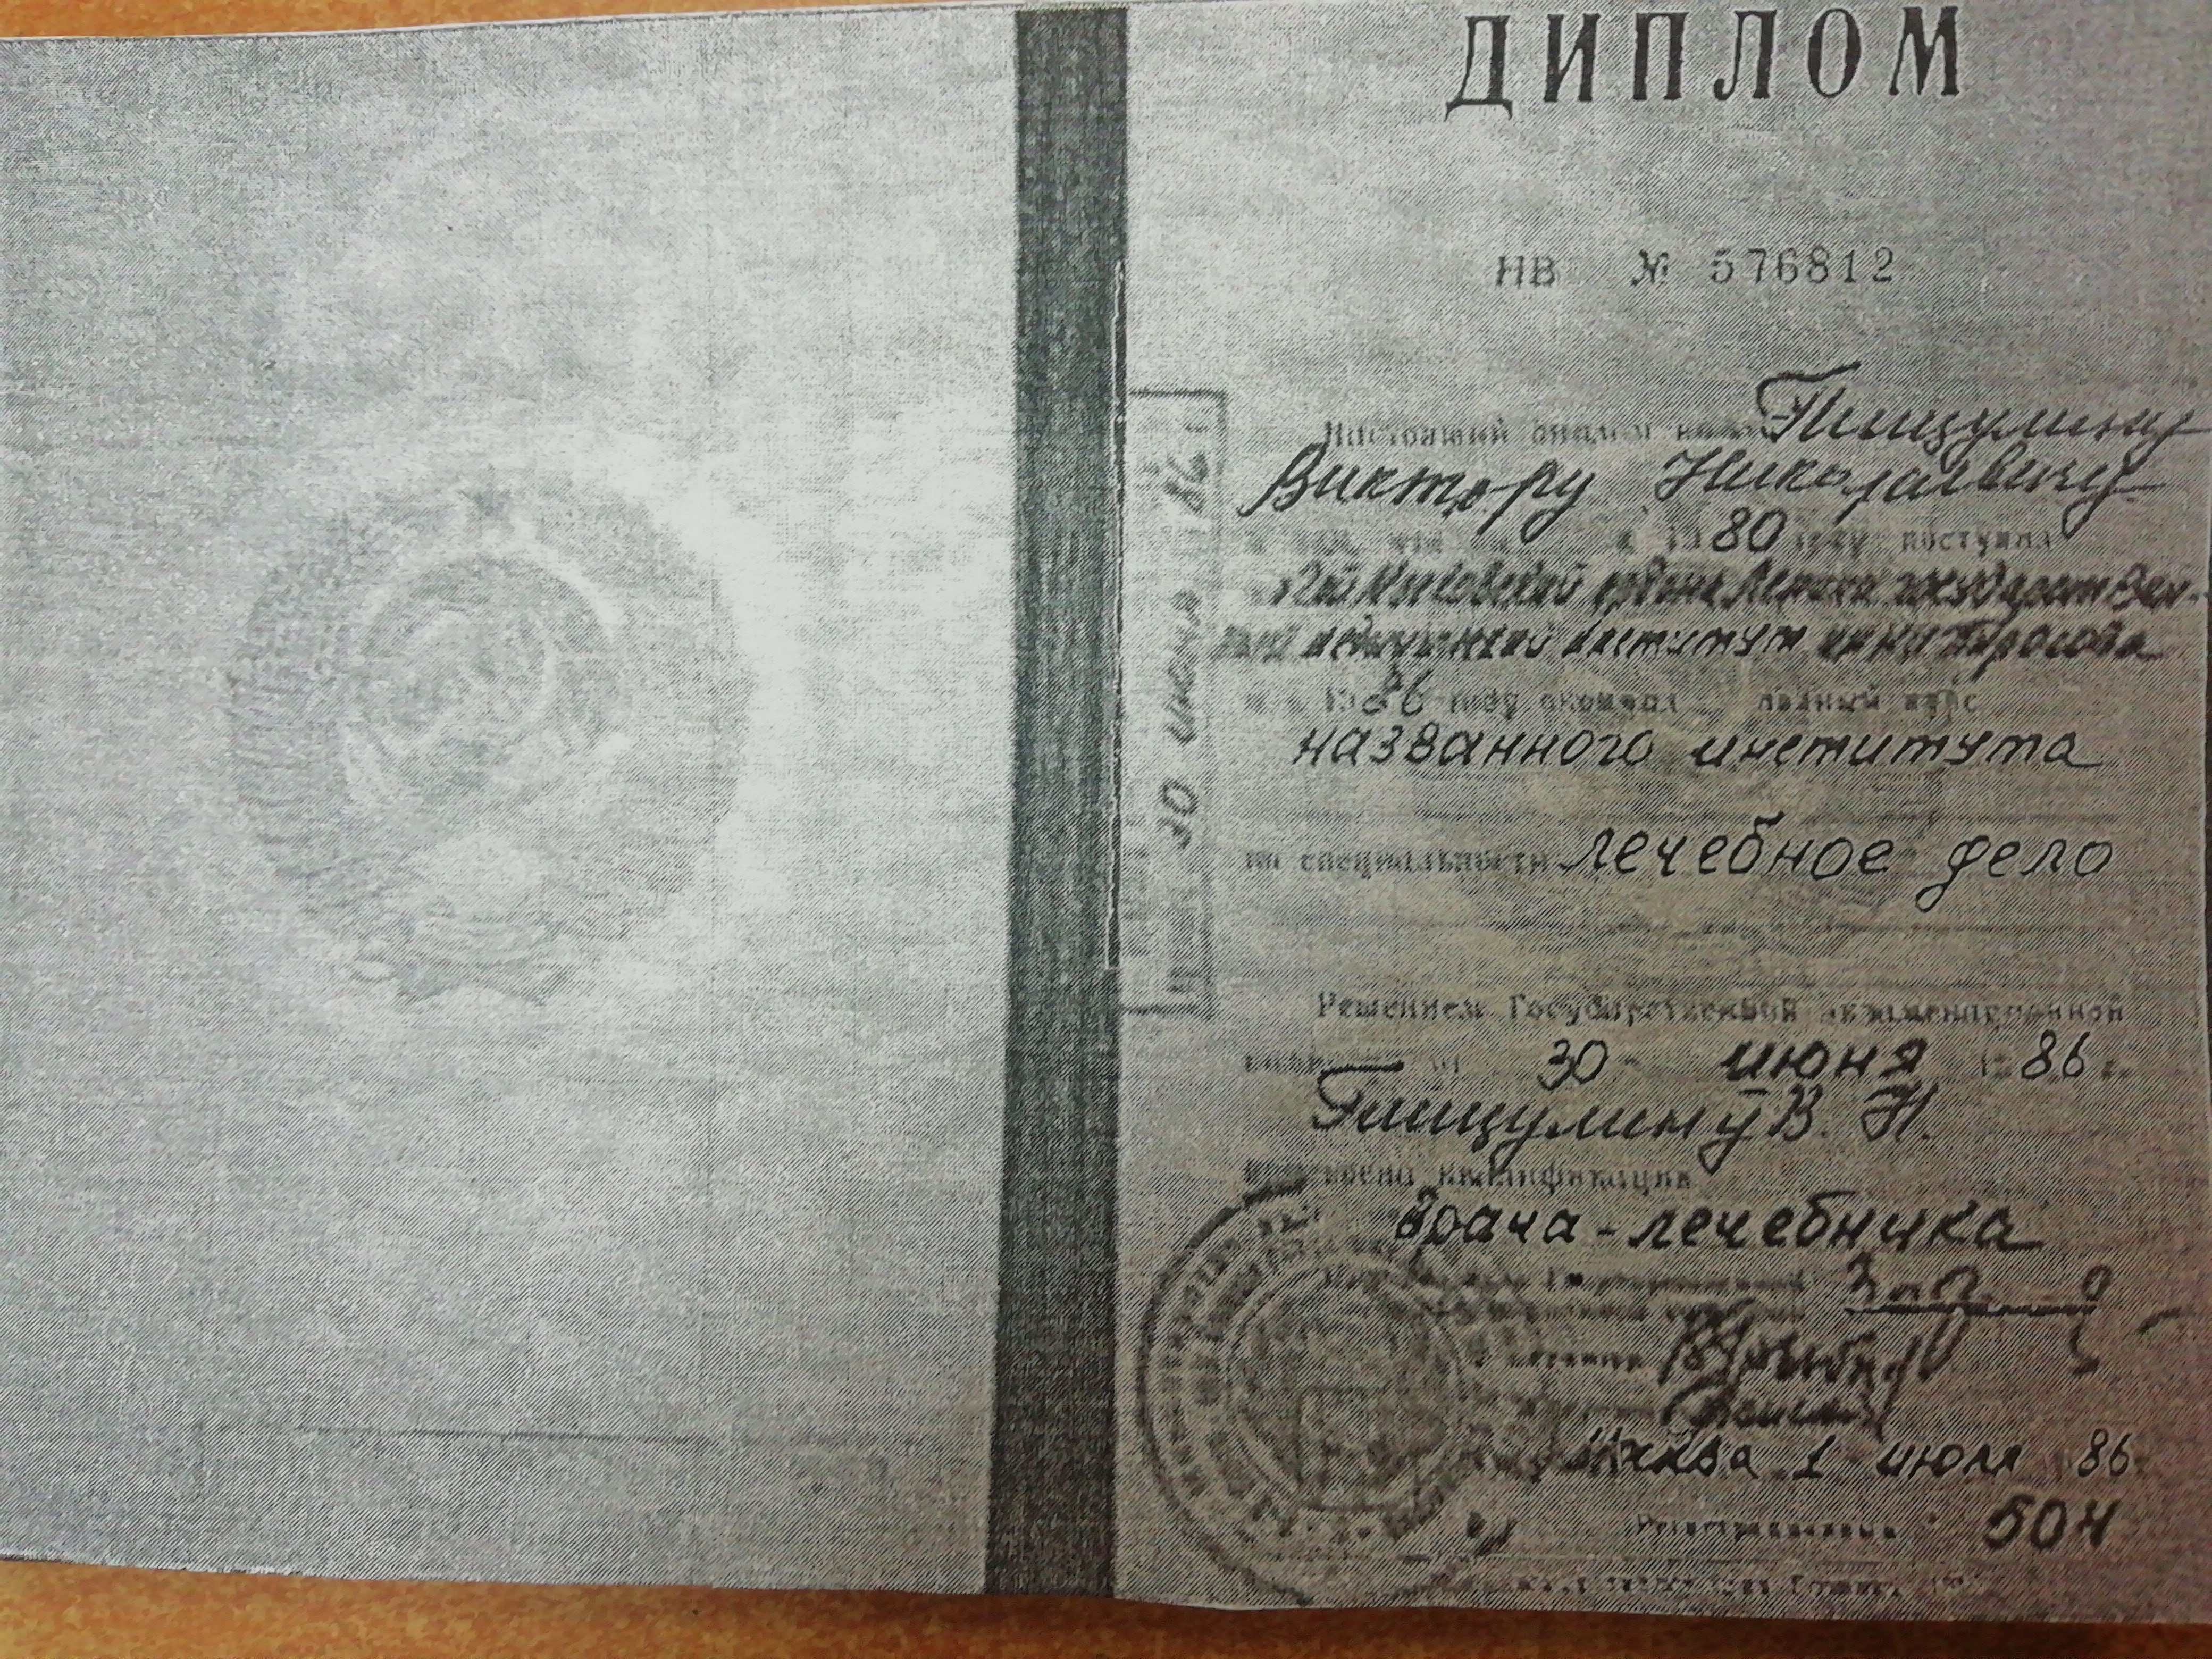 ДИПЛОМ
НВ № 576812
Настоящий диплом Пищулину
Виктору Николаевичу
в 1980 году поступил
2й Московский ордена Ленина государствен-
ный медицинский институт им Н И Пирогова
и в 1986 году окончил полный курс
названного института
по специальности лечебное дело
Решением Государственной экзаменационной
от 30 июня 1986 г.
Пищулину В. Н.
присвоена квалификация
Врача-лечебника
Государственной
Москва 1 июля 1986
Регистрационный 504
30 июня 86